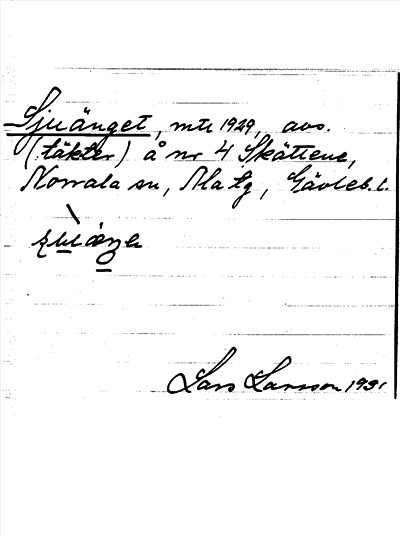 Sjuänget, mtr 1929, avs.
(täkter) å nr 4 Skättene,
Norrala sn, Ala tg, Gävleb. l.
Lars Larsson 1931